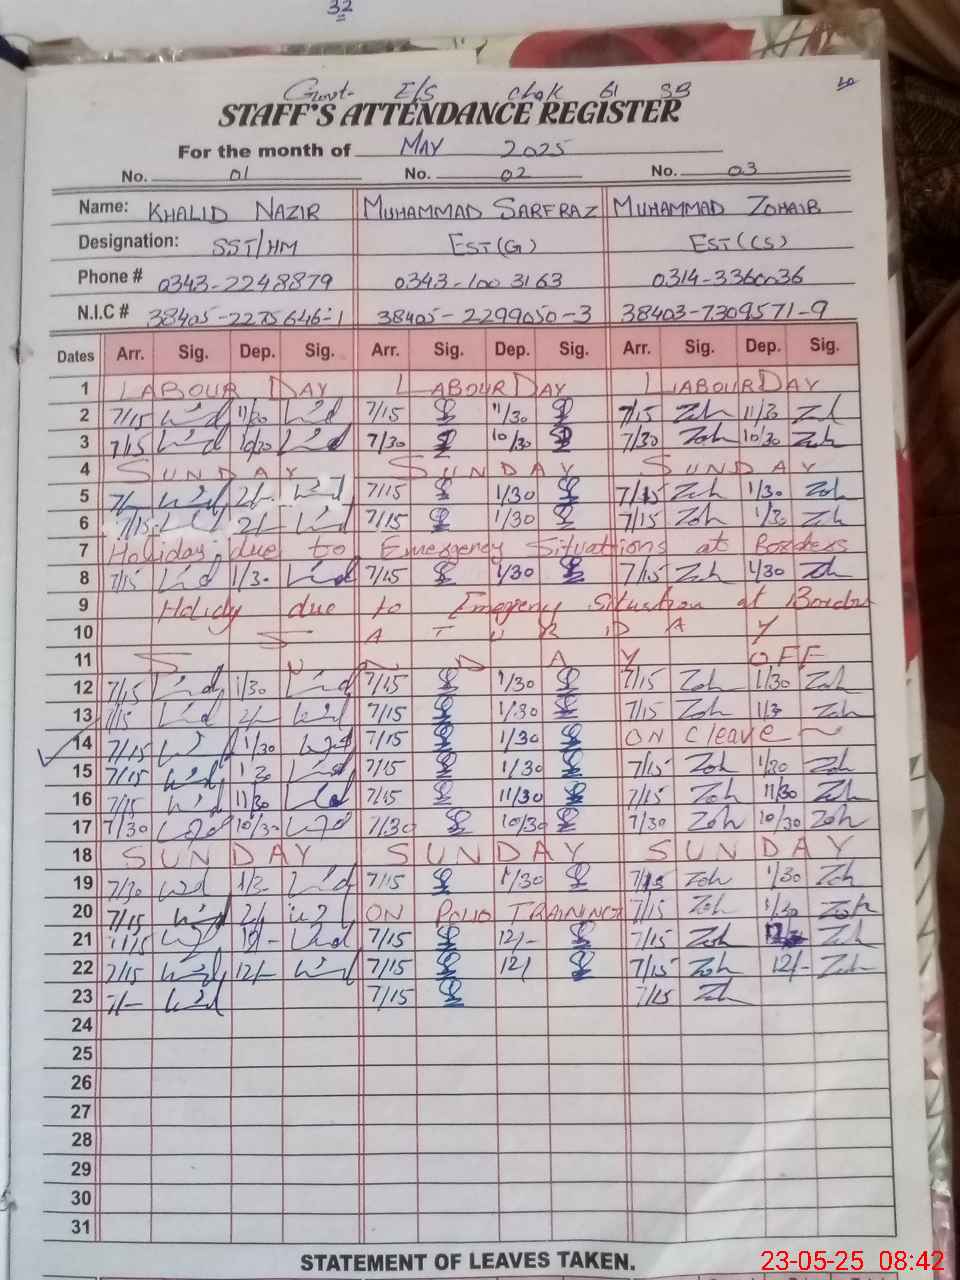 32
Govt- E/S Chak 61 SB
STAFF'S ATTENDANCE REGISTER
For the month of MAY 2025
No. 01 No. 02 No. 03
Name: KHALID NAZIR MUHAMMAD SARFRAZ MUHAMMAD ZOHAIB
Designation: SST/HM EST(G) EST(CS)
Phone # 0343-2248879 0343-1003163 0314-3360036
N.I.C # 38405-2275646-1 38405-2299050-3 38403-7309571-9
Dates Arr. Sig. Dep. Sig. Arr. Sig. Dep. Sig. Arr. Sig. Dep. Sig.
1 LABOUR DAY LABOUR DAY LABOUR DAY
2 7/15 11/30 7/15 11/30 7/15 Zoh 11/30 Zoh
3 7/15 10/30 7/30 10/30 7/30 Zoh 10/30 Zoh
4 SUNDAY SUNDAY SUNDAY
5 2/- 7/15 1/30 7/15 Zoh 1/30 Zoh
6 7/15 2/- 7/15 1/30 7/15 Zoh 1/30 Zoh
7 Holiday due to Emergency Situations at Borders
8 7/15 1/30 7/15 1/30 7/15 Zoh 1/30 Zoh
9 Holidy due to Emegency Situation at Border
10 SATURDAY
11 SUNDAY OFF
12 7/15 1/30 7/15 1/30 7/15 Zoh 1/30 Zoh
13 7/15 2/- 7/15 1/30 7/15 Zoh 1/30 Zoh
14 7/15 1/30 7/15 1/30 ON C leave
15 7/15 1/30 7/15 1/30 7/15 Zoh 1/30 Zoh
16 7/15 11/30 7/15 11/30 7/15 Zoh 11/30 Zoh
17 7/30 10/30 7/30 10/30 7/30 Zoh 10/30 Zoh
18 SUNDAY SUNDAY SUNDAY
19 7/30 1/30 7/15 1/30 7/15 Zoh 1/30 Zoh
20 7/15 2/- ON POLIO TRAINING 7/15 Zoh 1/30 Zoh
21 7/15 12/- 7/15 Zoh Zoh
22 7/15 12/- 7/15 12/ 7/15 Zoh 12/- Zoh
23 7/- 7/15 7/15 Zoh
24
25
26
27
28
29
30
31
STATEMENT OF LEAVES TAKEN.
23-05-25 08:42